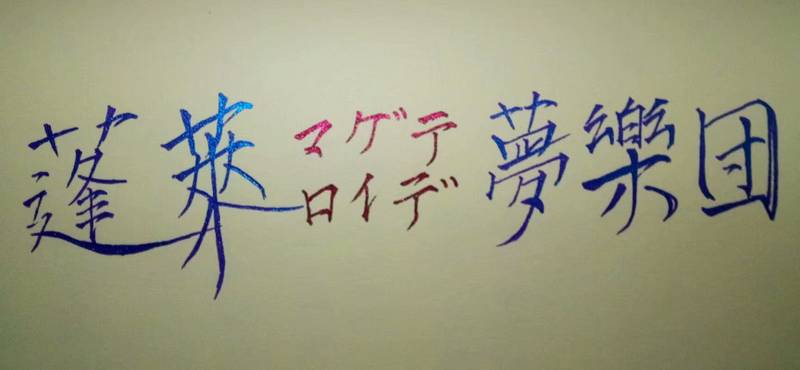 蓬萊マゲテロイデ夢樂団